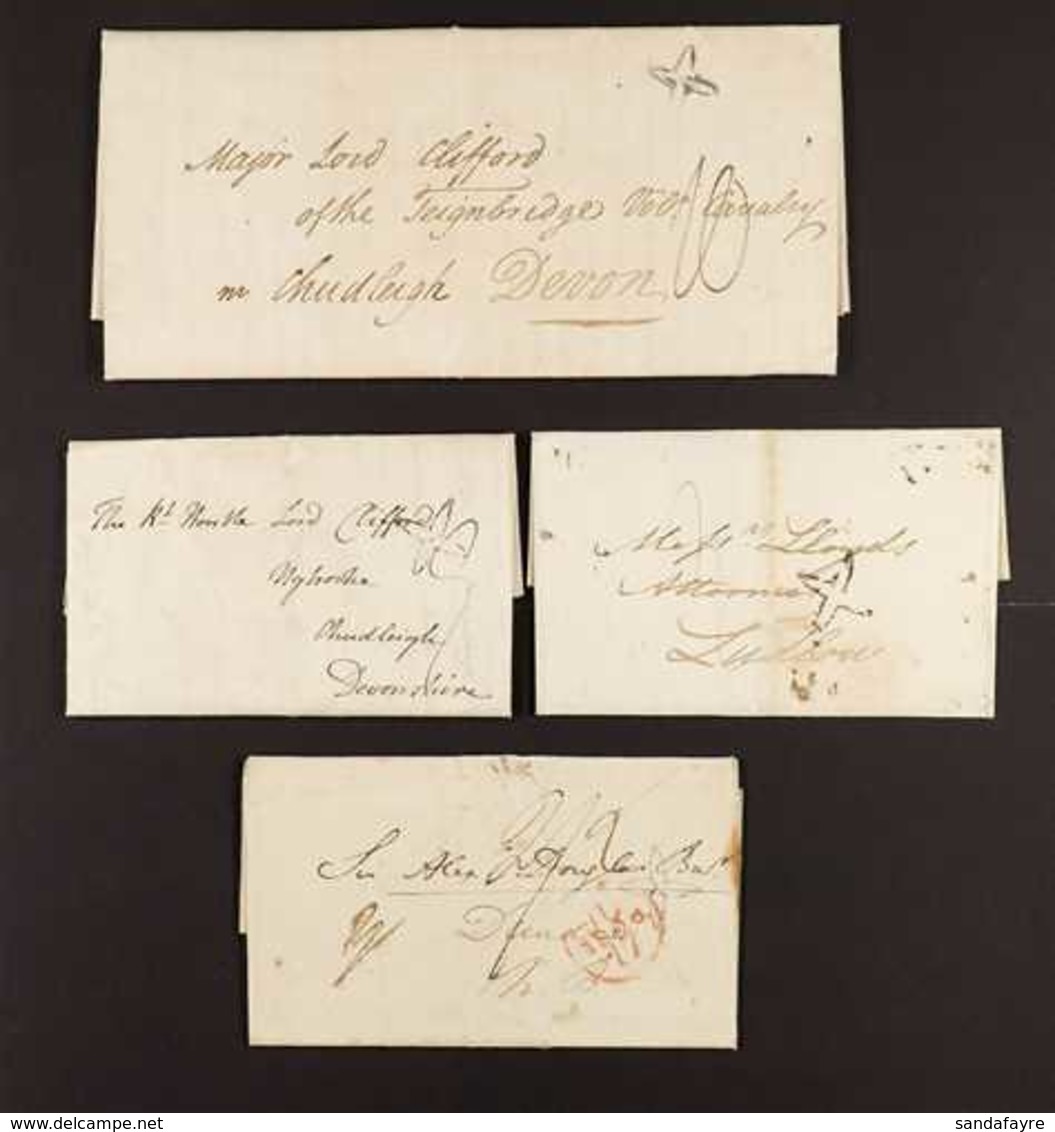 Major Lord Clifford
of the Teignbridge Vol. Cavalry
nr Chudleigh Devon
10
The Rt Honble Lord Clifford
Ugbrooke
Chudleigh
Devonshire
Messrs Lloyds
Attornies
Ludlow
Sir Alexr Douglas Bart
www.delcampe.net
sandafayre